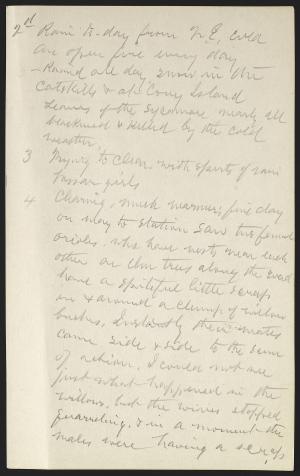 2nd Rain to-day from N.E, cold
an open fire every day
- Rained all day, snow in the
Catskills & at Coney Island
Leaves of the Sycamore nearly all
blackened & killed by the cold
weather.
3 Trying to clear, with spurts of rain
Vassar girls
4 Clearing, much warmer; fine day
on way to station saw two female
orioles, who have nests near each
other on elm trees along the road
have a spiteful little scrap
in & around a clump of willow
bushes, Instantly their mates
came side & side to the scene
of action. I could not see
just what happened in the
willows, but the wives stopped
quarreling, & in a moment the
males were having a scrap,